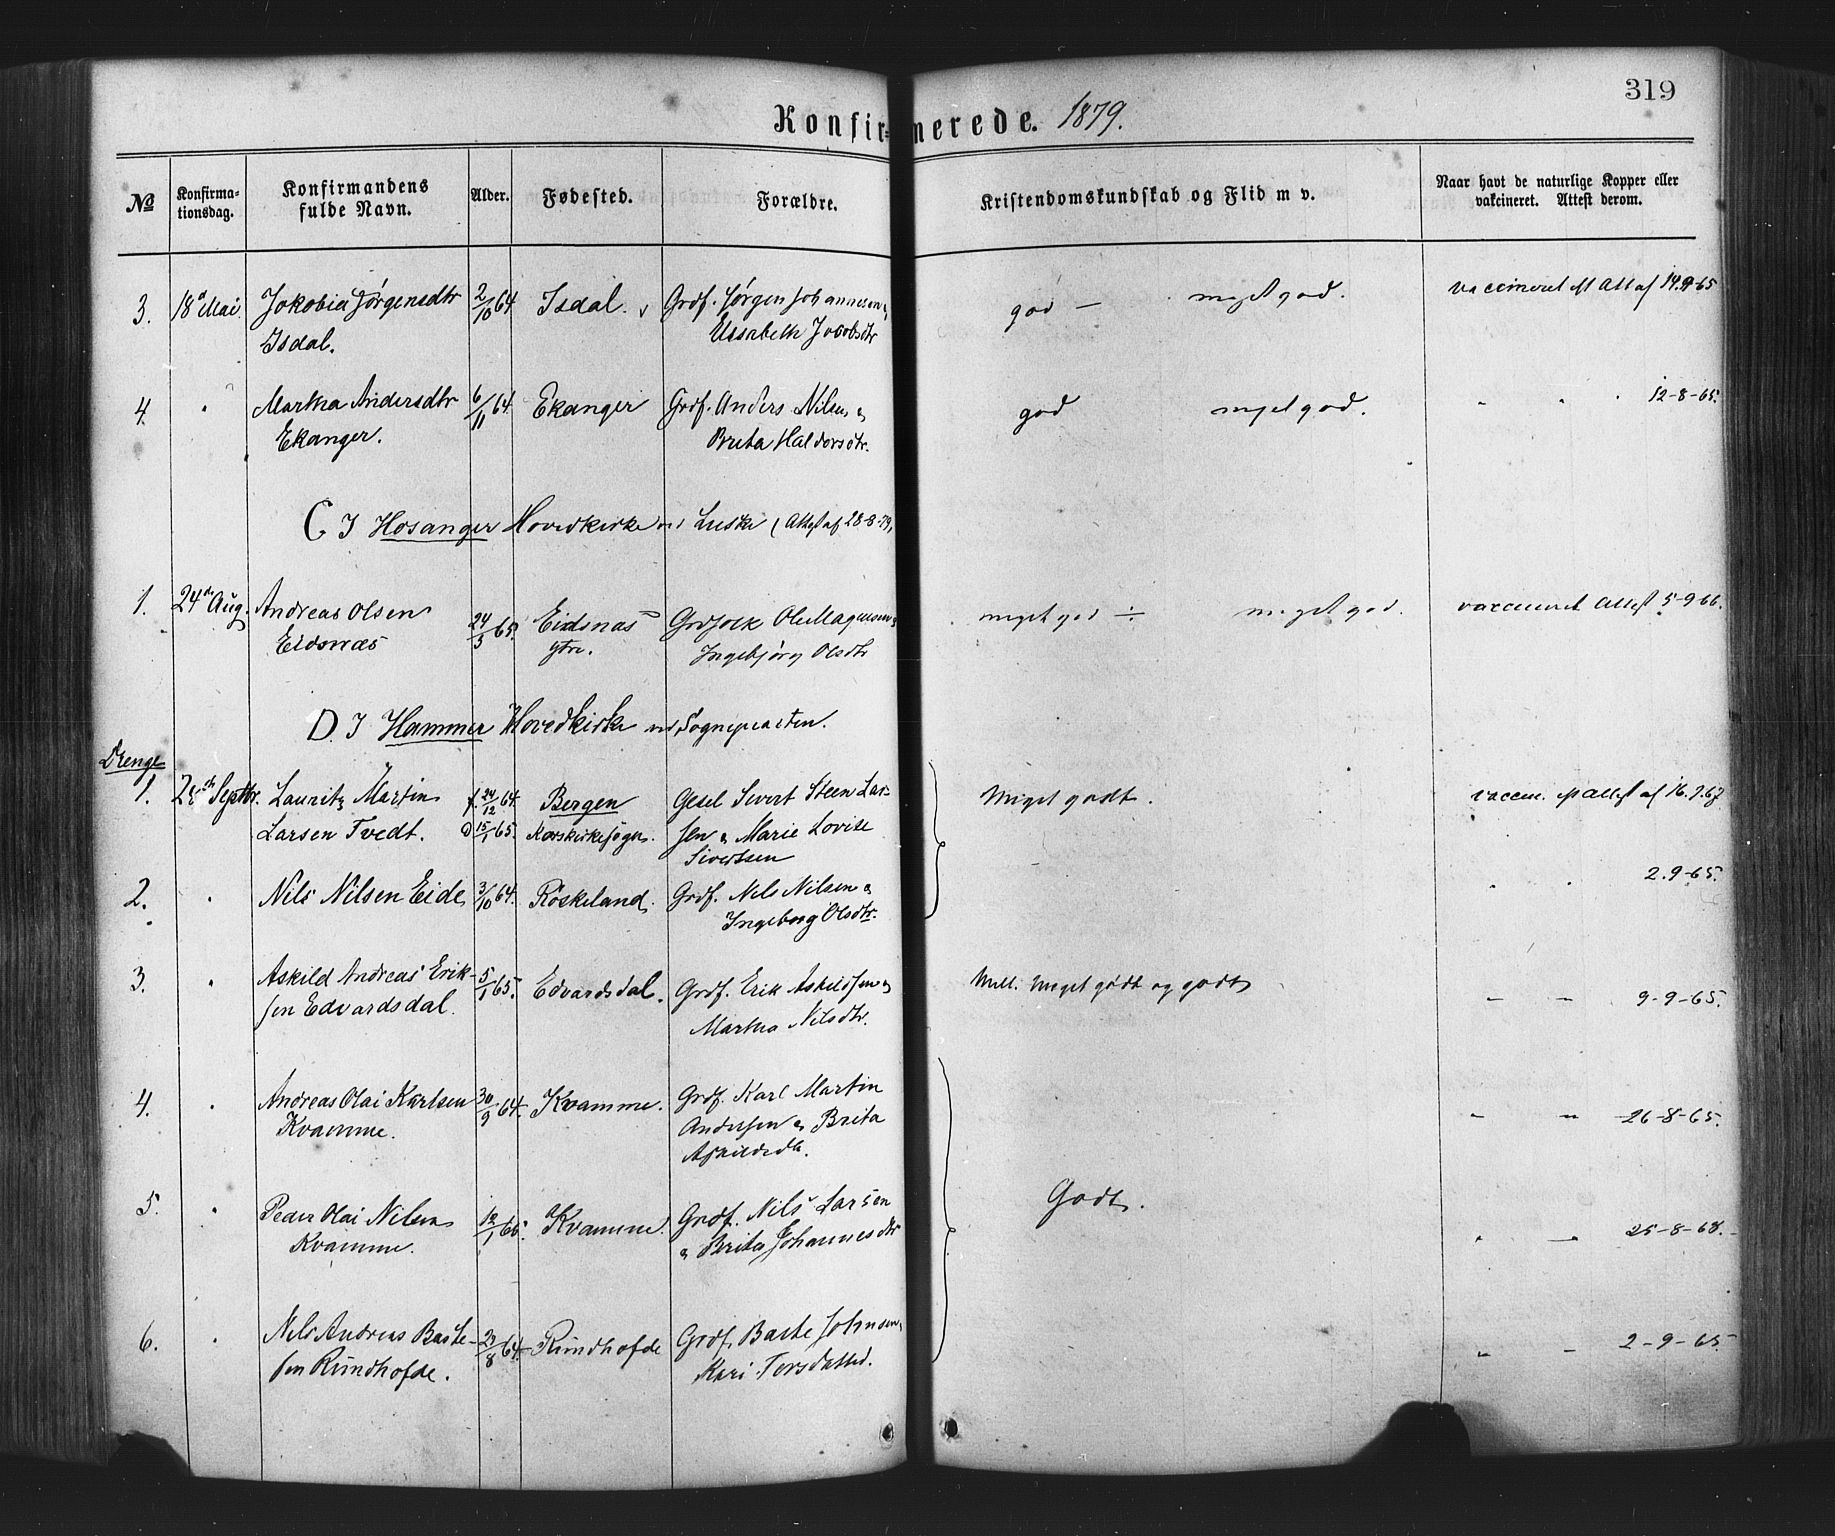 319
Konfirmerede. 1879.
No Konfirma-tionsdag. Konfirmandens fulde Navn. Alder. Fødested. Forældre. Kristendomskundskab og Flid m v. Naar havt de naturlige Kopper eller vakcineret. Attest derom.
3. 18d Mai. Jokobia Jørgensdtr 2/10 64 Isdal. Grdf. Jørgen Johannesen & god — meget god. vaccineret Att af 14.9-65
Isdal. Elisabeth Jacobsdtr
4. " Martha Andersdtr 6/11 64 Ekanger Grdf. Anders Nilsen & god meget god. " " 12-8-65.
Ekanger. Brita Haldorsdtr.
C I Hosanger Hovedkirke (Attest af 28-8-79,
1. 24de Aug. Andreas Olsen 24/3 65. Eidsnæs Grdfolk Ole Magnusen & meget god ÷ meget god. vaccineret Attest 5-9-66.
Eidsnæs ytre. Ingebjørg Olsdtr
D. I Hammer Hovedkirke Sognepræsten.
Drenge
1. 28de Septbr. Lauritz Martin f. 24/12 64. Bergen Gesel Sivert Steen Lar- Meget godt. vaccin. Attest af 16.9.67
Larsen Tvedt. D 15/1 65. Korskirkesogn. sen & Marie Lovise
Sivertsen
2. " Nils Nilsen Eide 3/10 64. Röskeland. Grdf. Nils Nilsen & " " 2.9-65.
Ingeborg Olsdtr.
3. " Askild Andreas Erik- 5/1 65. Edvardsdal. Grdf. Erik Askildsen & Mell. meget godt og godt " " 9-9-65.
sen Edvardsdal. Martha Nilsdtr.
4. " Andreas Olai Karlsen 30/9 64. Kvamme. Grdf. Karl Martin " " 26-8-65.
Kvamme. Andersen & Brita
Askildsdtr.
5. " Peder Olai Nilsen 12/1 65. Kvamme. Grdf. Nils Larsen Godt. " — 25-8-68.
Kvamme. & Brita Johannesdtr
6. " Nils Andreas Baste- 23/8 64. Rundhofde Grdf. Baste Johnsen & " - 2-9-65.
sen Rundhofde. Kari Torsdatter.